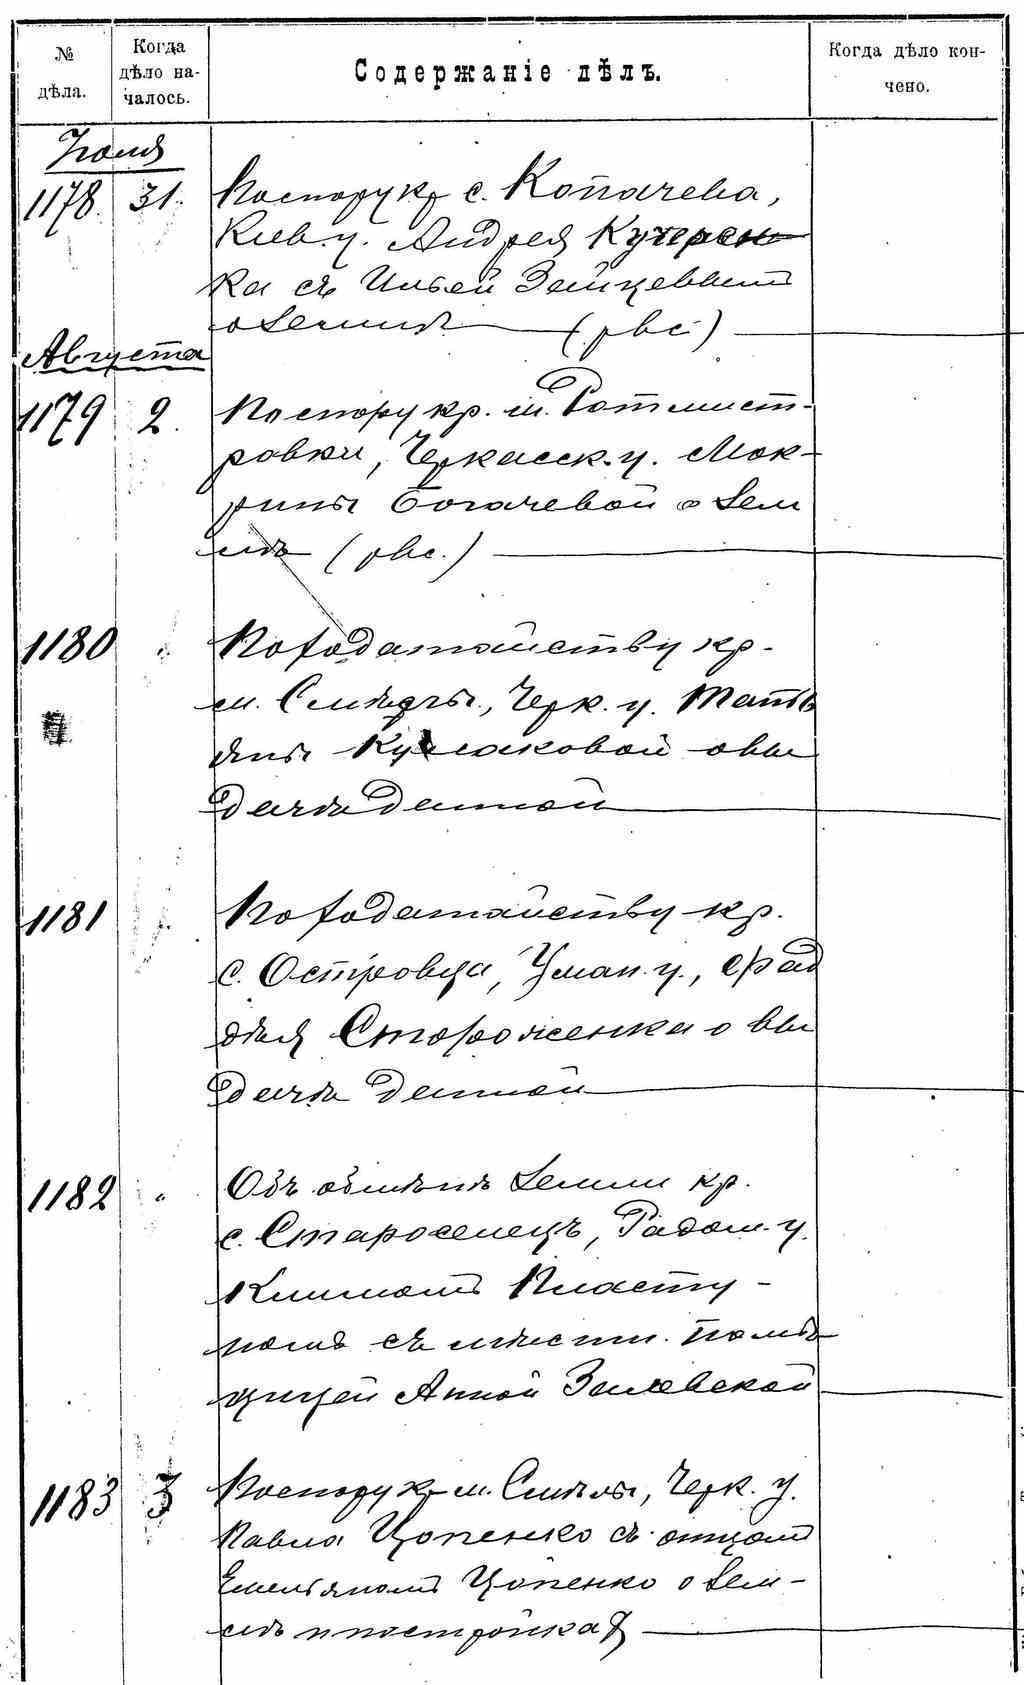 № дѣла.
Когда дѣло началось.
Содержаніе дѣлъ.
Когда дѣло кончено.
Іюля
1178. 31. По спору кр с. Копачева,
Кіев. у. Андрея Кучерен-
ка съ Ильей Зайцевымъ
о землѣ (рвс)
Августа
1179 2. По спору кр. м. Ротмист-
ровки, Черкасск. у. Мок-
рины Богачевой о зем
лѣ (рвс.)
1180 " По ходатайству кр.
м. Смѣлы, Черк. у. Тать
яны Кулаковой о вы
дачѣ данной
1181 По ходатайству кр.
с. Островца, Уман. у., Фад
дѣя Стороженка о вы
дачѣ данной
1182 " Объ обмѣнѣ земли кр.
с. Староселецъ, Радом. у.
Климомъ Пласту-
номъ съ мѣстн. помѣ
щицей Анной Залевской
1183 3 По спору кр м. Смѣлы, Черк. у.
Павла Цопенко съ отцомъ
Емельяномъ Цопенко о зем-
лѣ и постройкахъ